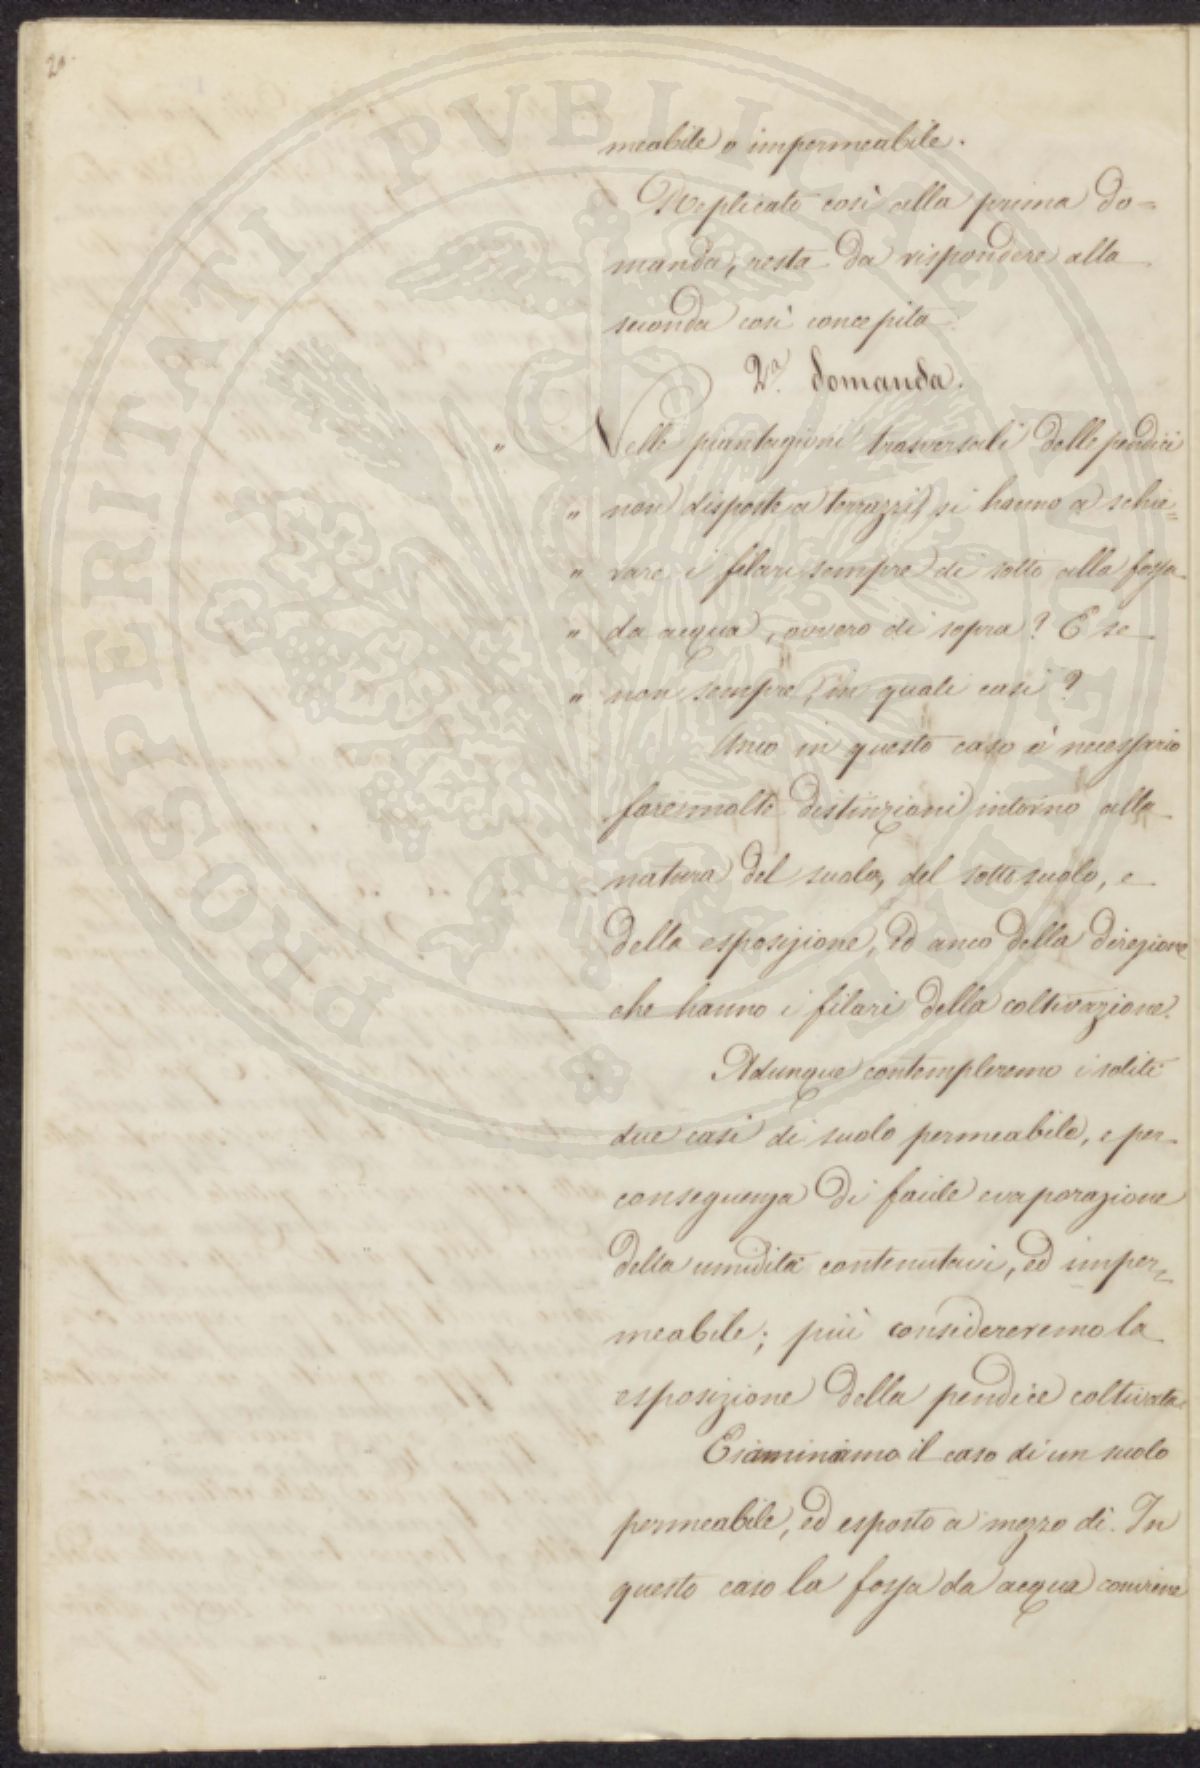 20.
meabile o impermeabile.
Replicato così alla prima do=
manda, resta da rispondere alla
seconda così concepita
2.ª domanda.
" Nelle piantagioni trasversali delle pendici
" non disposte a terrazzi, si hanno a schie=
" rare i filari sempre di sotto alla fossa
" da acqua, ovvero di sopra? E se
" non sempre, in quali casi?
Anco in questo caso è necessario
fare molte distinzioni intorno alla
natura del suolo, del sottosuolo, e
della esposizione, ed anco della direzione
che hanno i filari della coltivazione.
Adunque contempleremo i soliti
due casi di suolo permeabile, e per
conseguenza di facile evaporazione
della umidità contenutavi, ed imper=
meabile; più considereremo la
esposizione della pendice coltivata.
Esaminiamo il caso di un suolo
permeabile, ed esposto a mezzo dì. In
questo caso la fossa da acqua conviene
PROSPERITATI PUBLICAE AUGENDAE